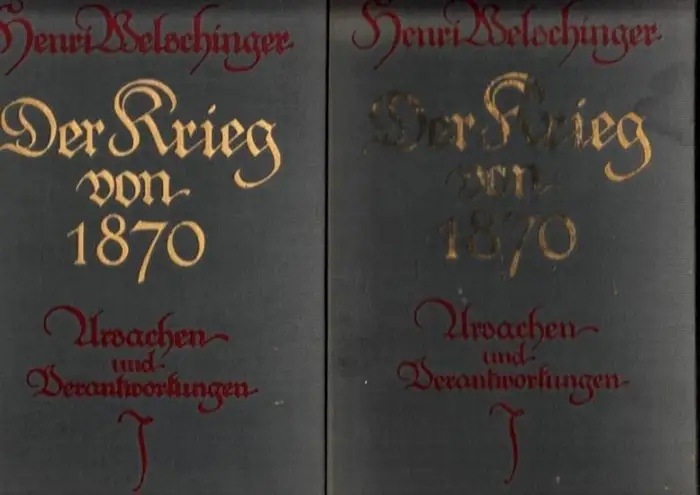 Henri Welschinger
Der Krieg
von
1870
Ursachen
und
Verantwortungen
I
Henri Welschinger
Der Krieg
von
1870
Ursachen
und
Verantwortungen
I